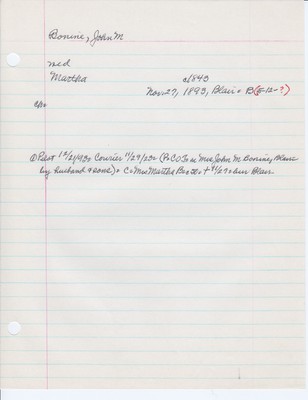 Bonine, John M
md
Martha c1843
Nov. 27, 1893, Blair. B(8-12-?)
c/o
① Pilot 12/21/93. Courier 11/29/23. (PCO To Mrs John M. Bonine, Blair
by husband & sons). C. Mrs Martha B. 50. + 11/27. bur Blair